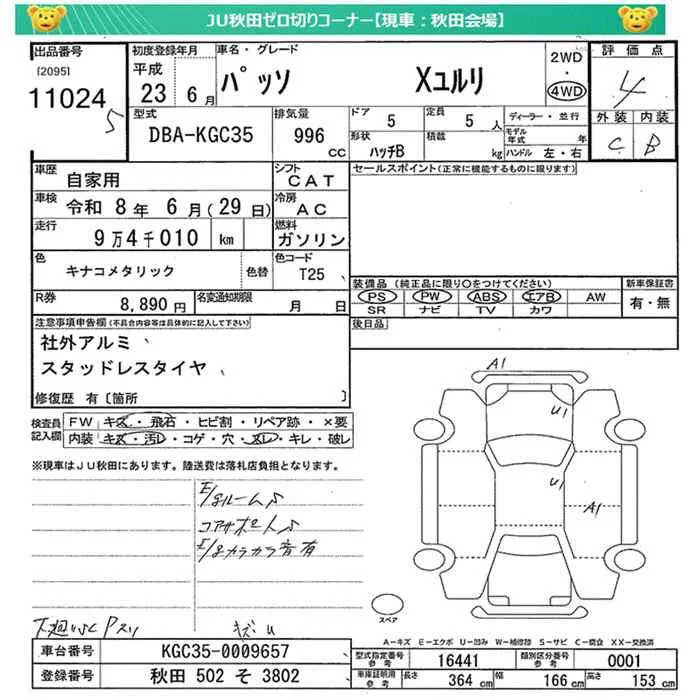 JU秋田ゼロ切りコーナー【現車：秋田会場】
出品番号 [2095] 11024 5
初度登録年月 平成 23 6月
車名・グレード パッソ Xユルリ
2WD・4WD
評価点 4
外装 C 内装 B
型式 DBA-KGC35
排気量 996 CC
ドア 5 定員 5人
形状 ハッチB 積載 kg
ディーラー・並行
モデル年式 年
ハンドル 左・右
車歴 自家用
シフト CAT
セールスポイント(正常に機能するものに限ります)
車検 令和 8年 6月(29日)
冷房 AC
走行 9万4千010 km
燃料 ガソリン
色 キナコメタリック 色替
色コード T25
装備品(純正品に限り〇をつけてください)
新車保証書 有・無
PS PW ABS エアB AW
SR ナビ TV カワ
R券 8,890円
名変通知期限 月 日
後日品
注意事項申告欄(不具合内容等は具体的に記入して下さい)
社外アルミ
スタッドレスタイヤ
修復歴 有〔箇所 〕
検査員記入欄
FW キズ・飛石・ヒビ割・リペア跡・×要
内装 キズ・汚レ・コゲ・穴・スレ・キレ・破レ
※現車はJU秋田にあります。陸送費は落札店負担となります。
E/gルームS
コアサポートS
E/gカラカラ音有
下廻りSC Pスリ キズ:U
A1
U1
U1
A1
スペア
A－キズ E－エクボ U－凹み W－補修跡 S－サビ C－腐食 XX－交換済
車台番号 KGC35-0009657
登録番号 秋田 502 そ 3802
型式指定番号 参考 16441
類別区分番号 参考 0001
車庫証明用 参考 長さ 364 cm 幅 166 cm 高さ 153 cm